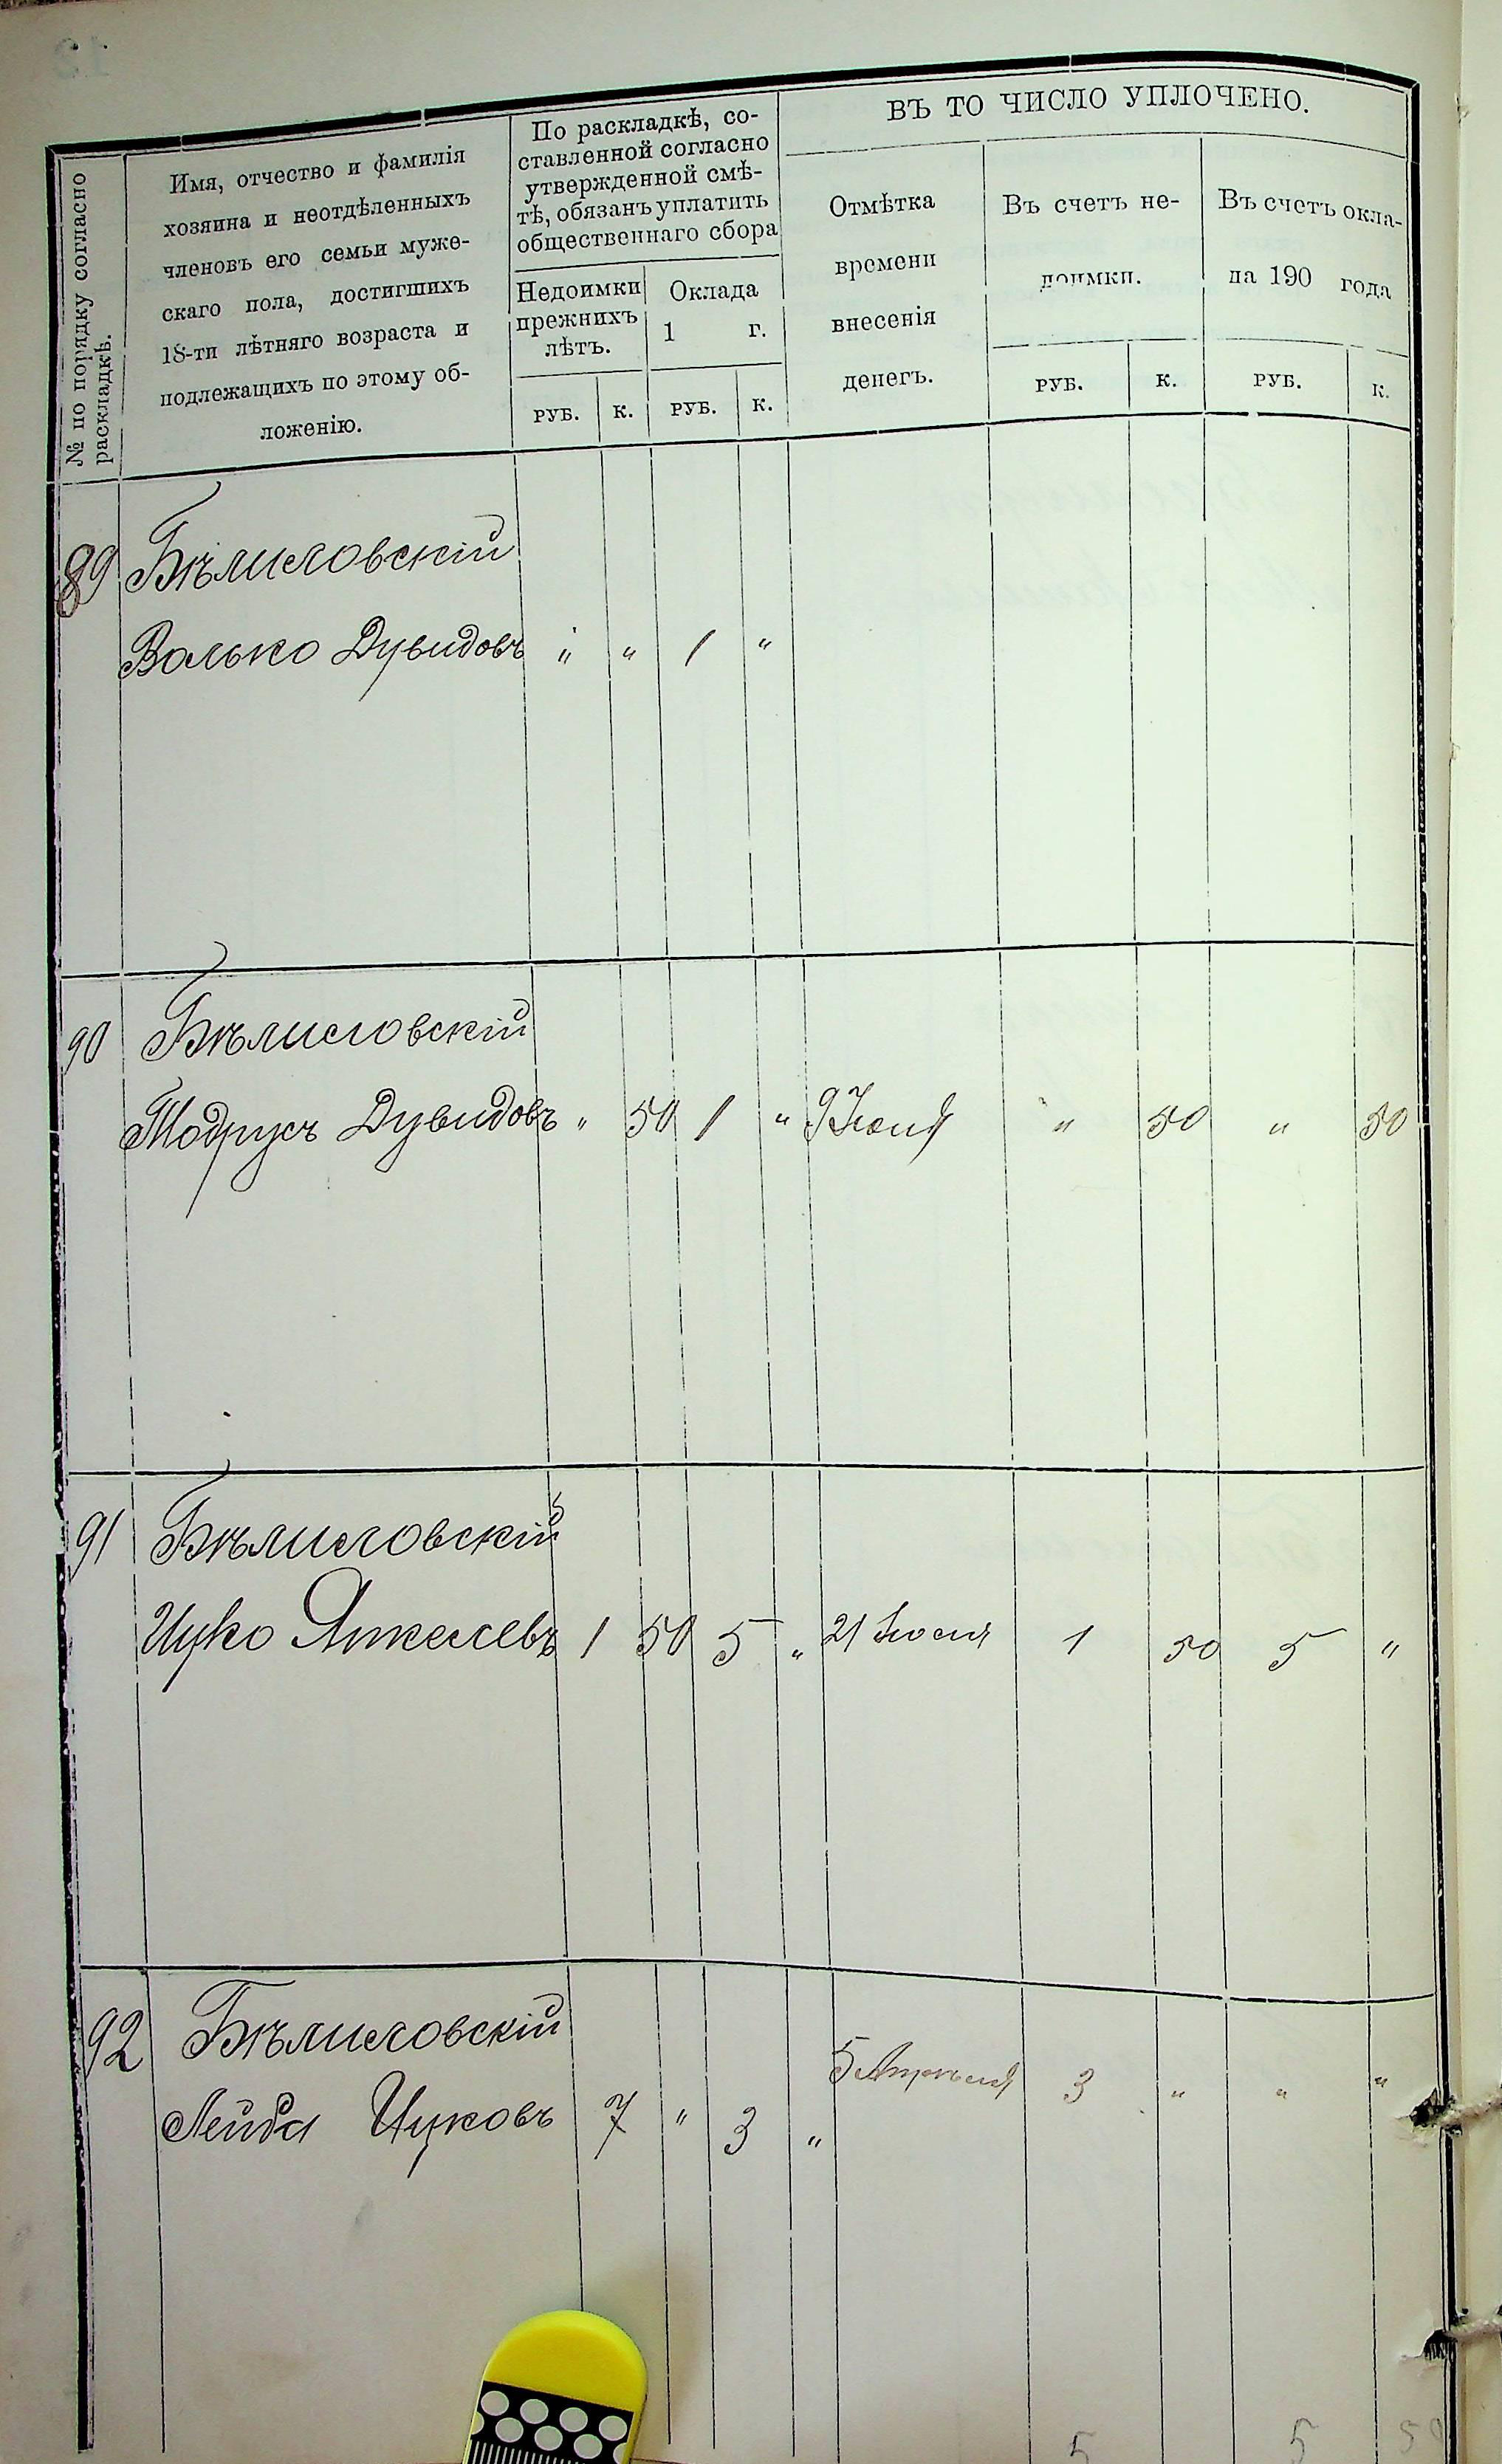 № по порядку согласно
раскладкѣ.
Имя, отчество и фамилія
хозяина и неотдѣленныхъ
членовъ его семьи муже-
скаго пола, достигшихъ
18-ти лѣтняго возраста и
подлежащихъ по этому об-
ложенію.
По раскладкѣ, со-
ставленной согласно
утвержденной смѣ-
тѣ, обязанъ уплатить
общественнаго сбора
Недоимки
прежнихъ
лѣтъ.
Оклада
1 г.
РУБ. К. РУБ. К.
ВЪ ТО ЧИСЛО УПЛОЧЕНО.
Отмѣтка
времени
внесенія
денегъ.
Въ счетъ не-
доимки.
Въ счетъ окла-
да 190 года
РУБ. К. РУБ. К.
89 Бѣлисловскій
Валько Дувидовъ " " 1 "
90 Бѣлисловскій
Тодрусъ Дувидовъ " 50 1 " 9 Іюня " 50 " 50
91 Бѣлисловскій
Ицко Янкелевъ 1 50 5 " 21 Іюля 1 50 5 "
92 Бѣлисловскій
5 Апрѣля 3 " " "
Лейба Ицковъ 7 " 3 "
5 5 50